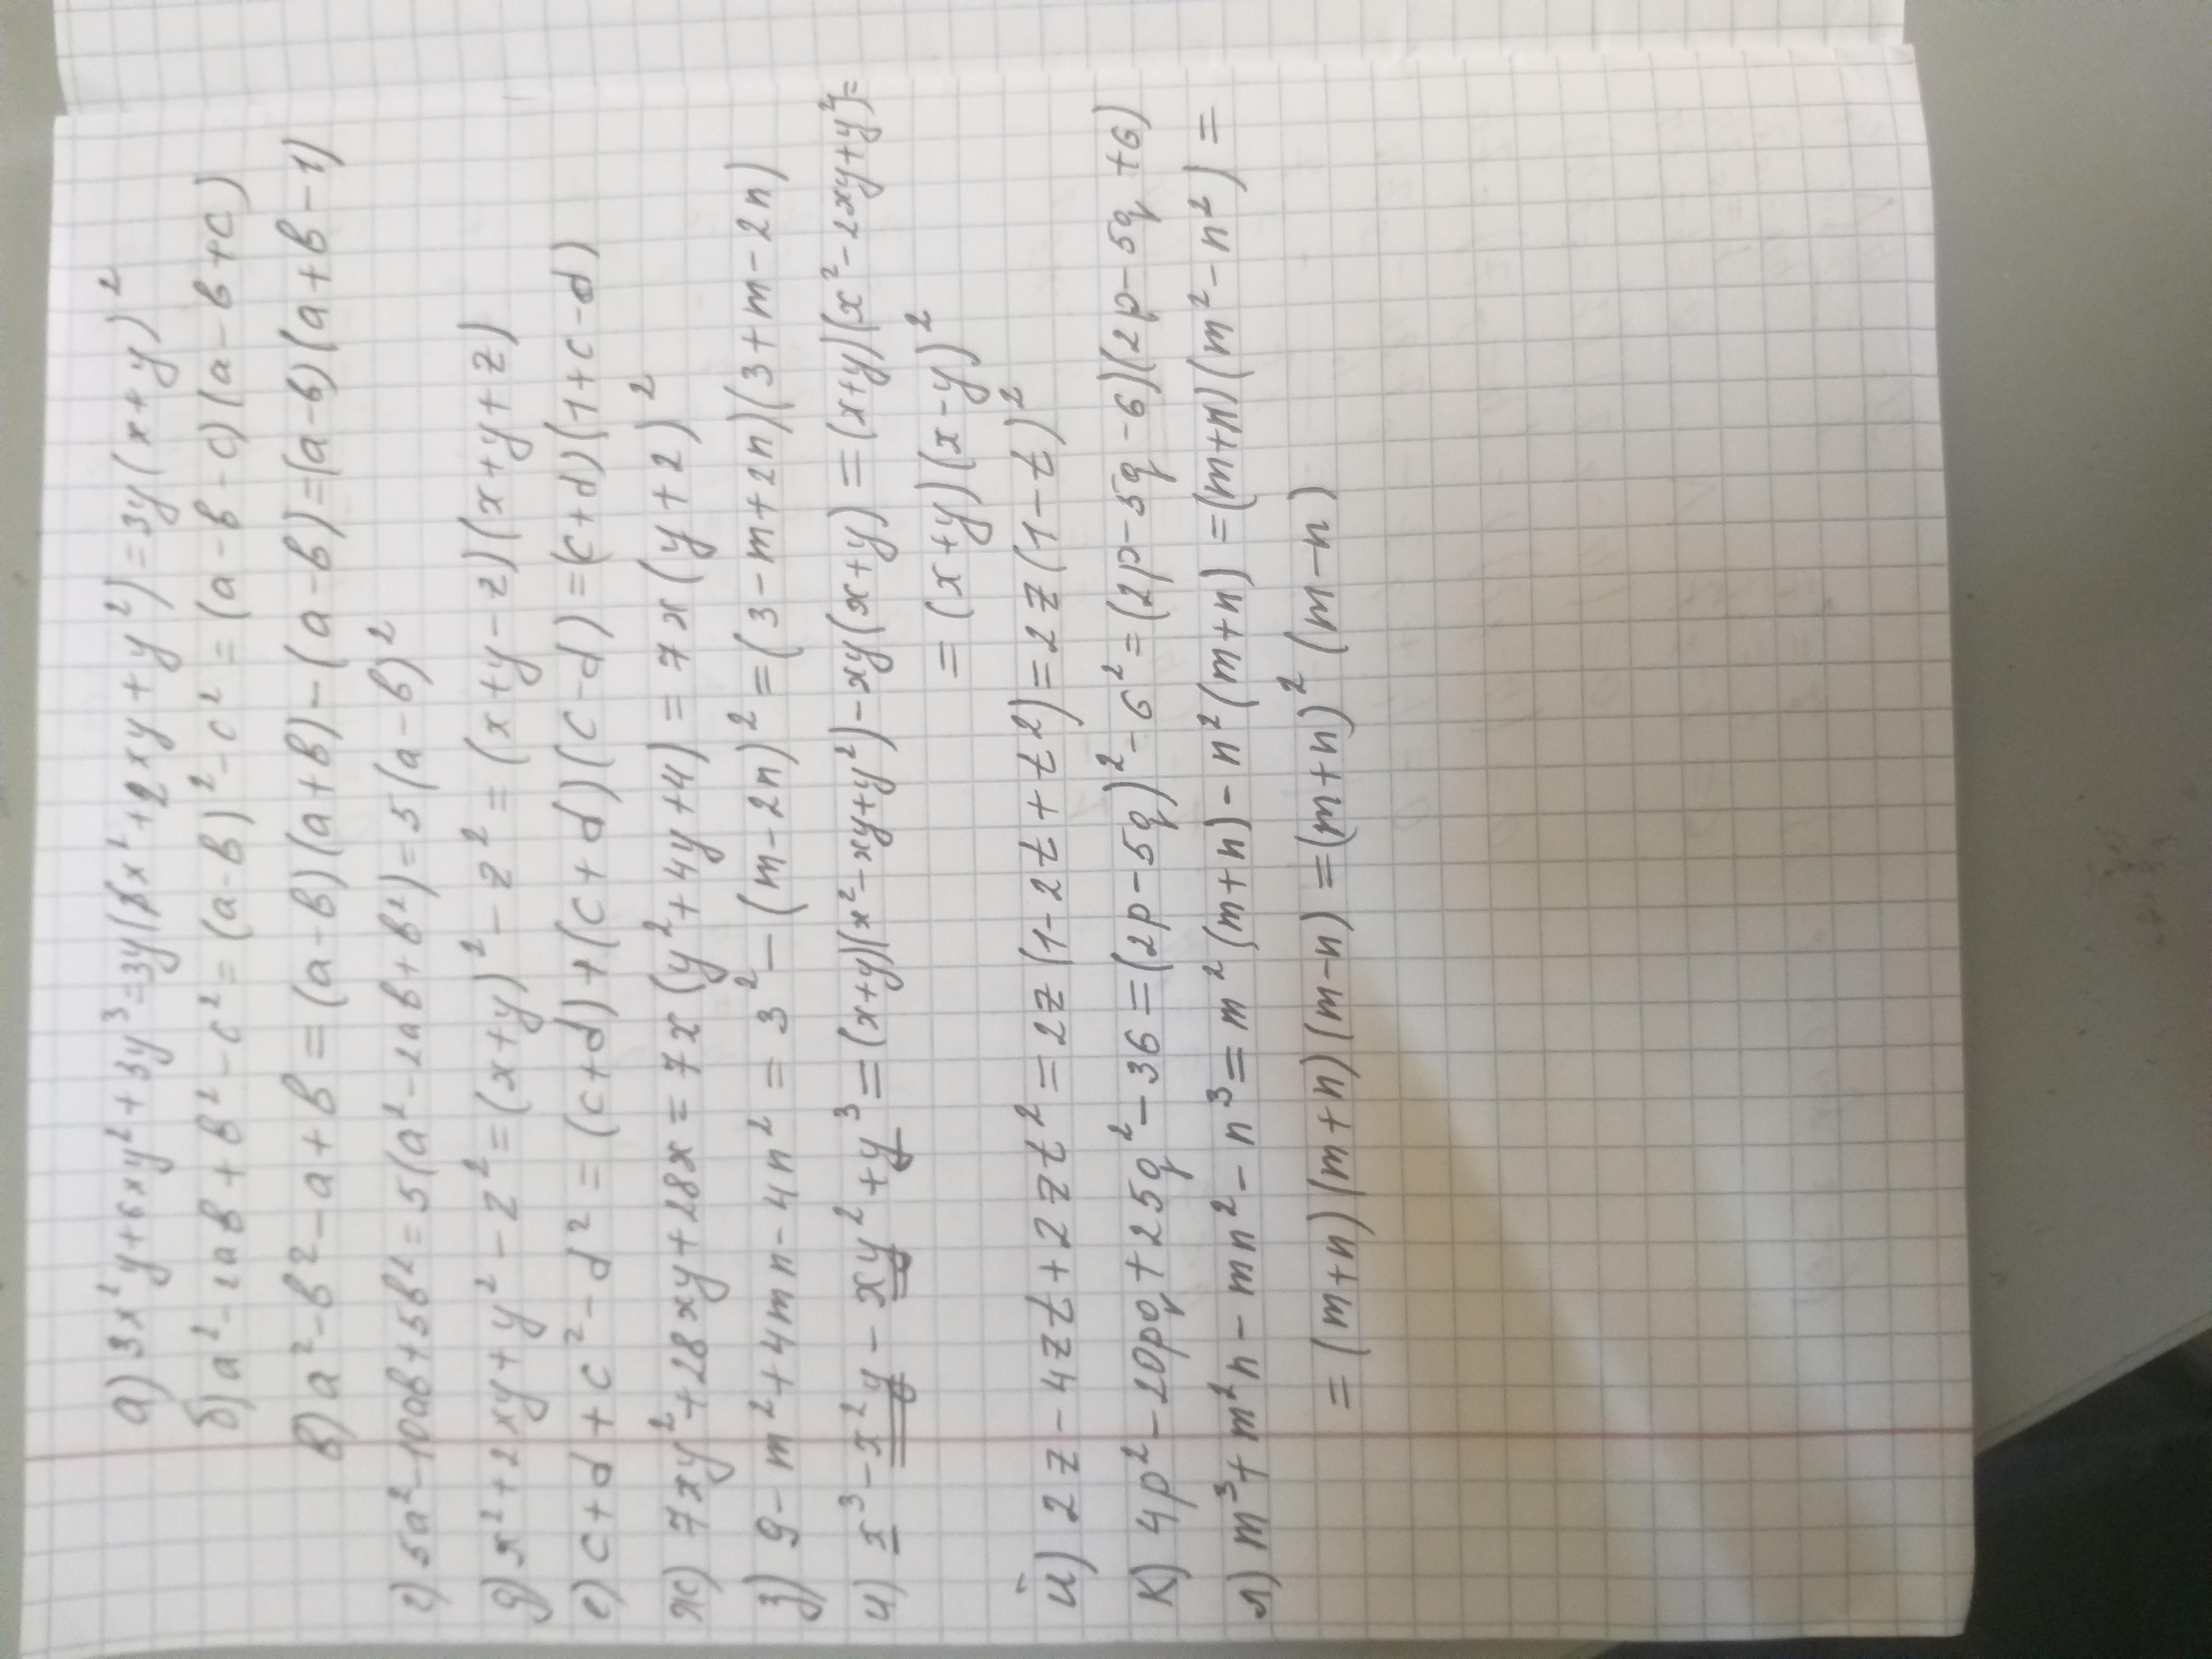 а) 3x²y+6xy²+3y³=3y(x²+2xy+y²)=3y(x+y)²
б) a²-2ab+b²-c²=(a-b)²-c²=(a-b-c)(a-b+c)
в) a²-b²-a+b=(a-b)(a+b)-(a-b)=(a-b)(a+b-1)
г) 5a²-10ab+5b²=5(a²-2ab+b²)=5(a-b)²
д) x²+2xy+y²-z²=(x+y)²-z²=(x+y-z)(x+y+z)
е) c+d+c²-d²=(c+d)+(c+d)(c-d)=(c+d)(1+c-d)
ж) 7xy²+28xy+28x=7x(y²+4y+4)=7x(y+2)²
з) 9-m²+4mn-4n²=3²-(m-2n)²=(3-m+2n)(3+m-2n)
и) x³-x²y-xy²+y³=(x+y)(x²-xy+y²)-xy(x+y)=(x+y)(x²-2xy+y²)=
=(x+y)(x-y)²
й) 2z-4zt+2zt²=2z(1-2t+t²)=2z(1-t)²
к) 4p²-20pq+25q²-36=(2p-5q)²-6²=(2p-5q-6)(2p-5q+6)
л) m³+m²n-mn²-n³=m²(m+n)-n²(m+n)=(m+n)(m²-n²)=
=(m+n)(m+n)(m-n)=(m+n)²(m-n)